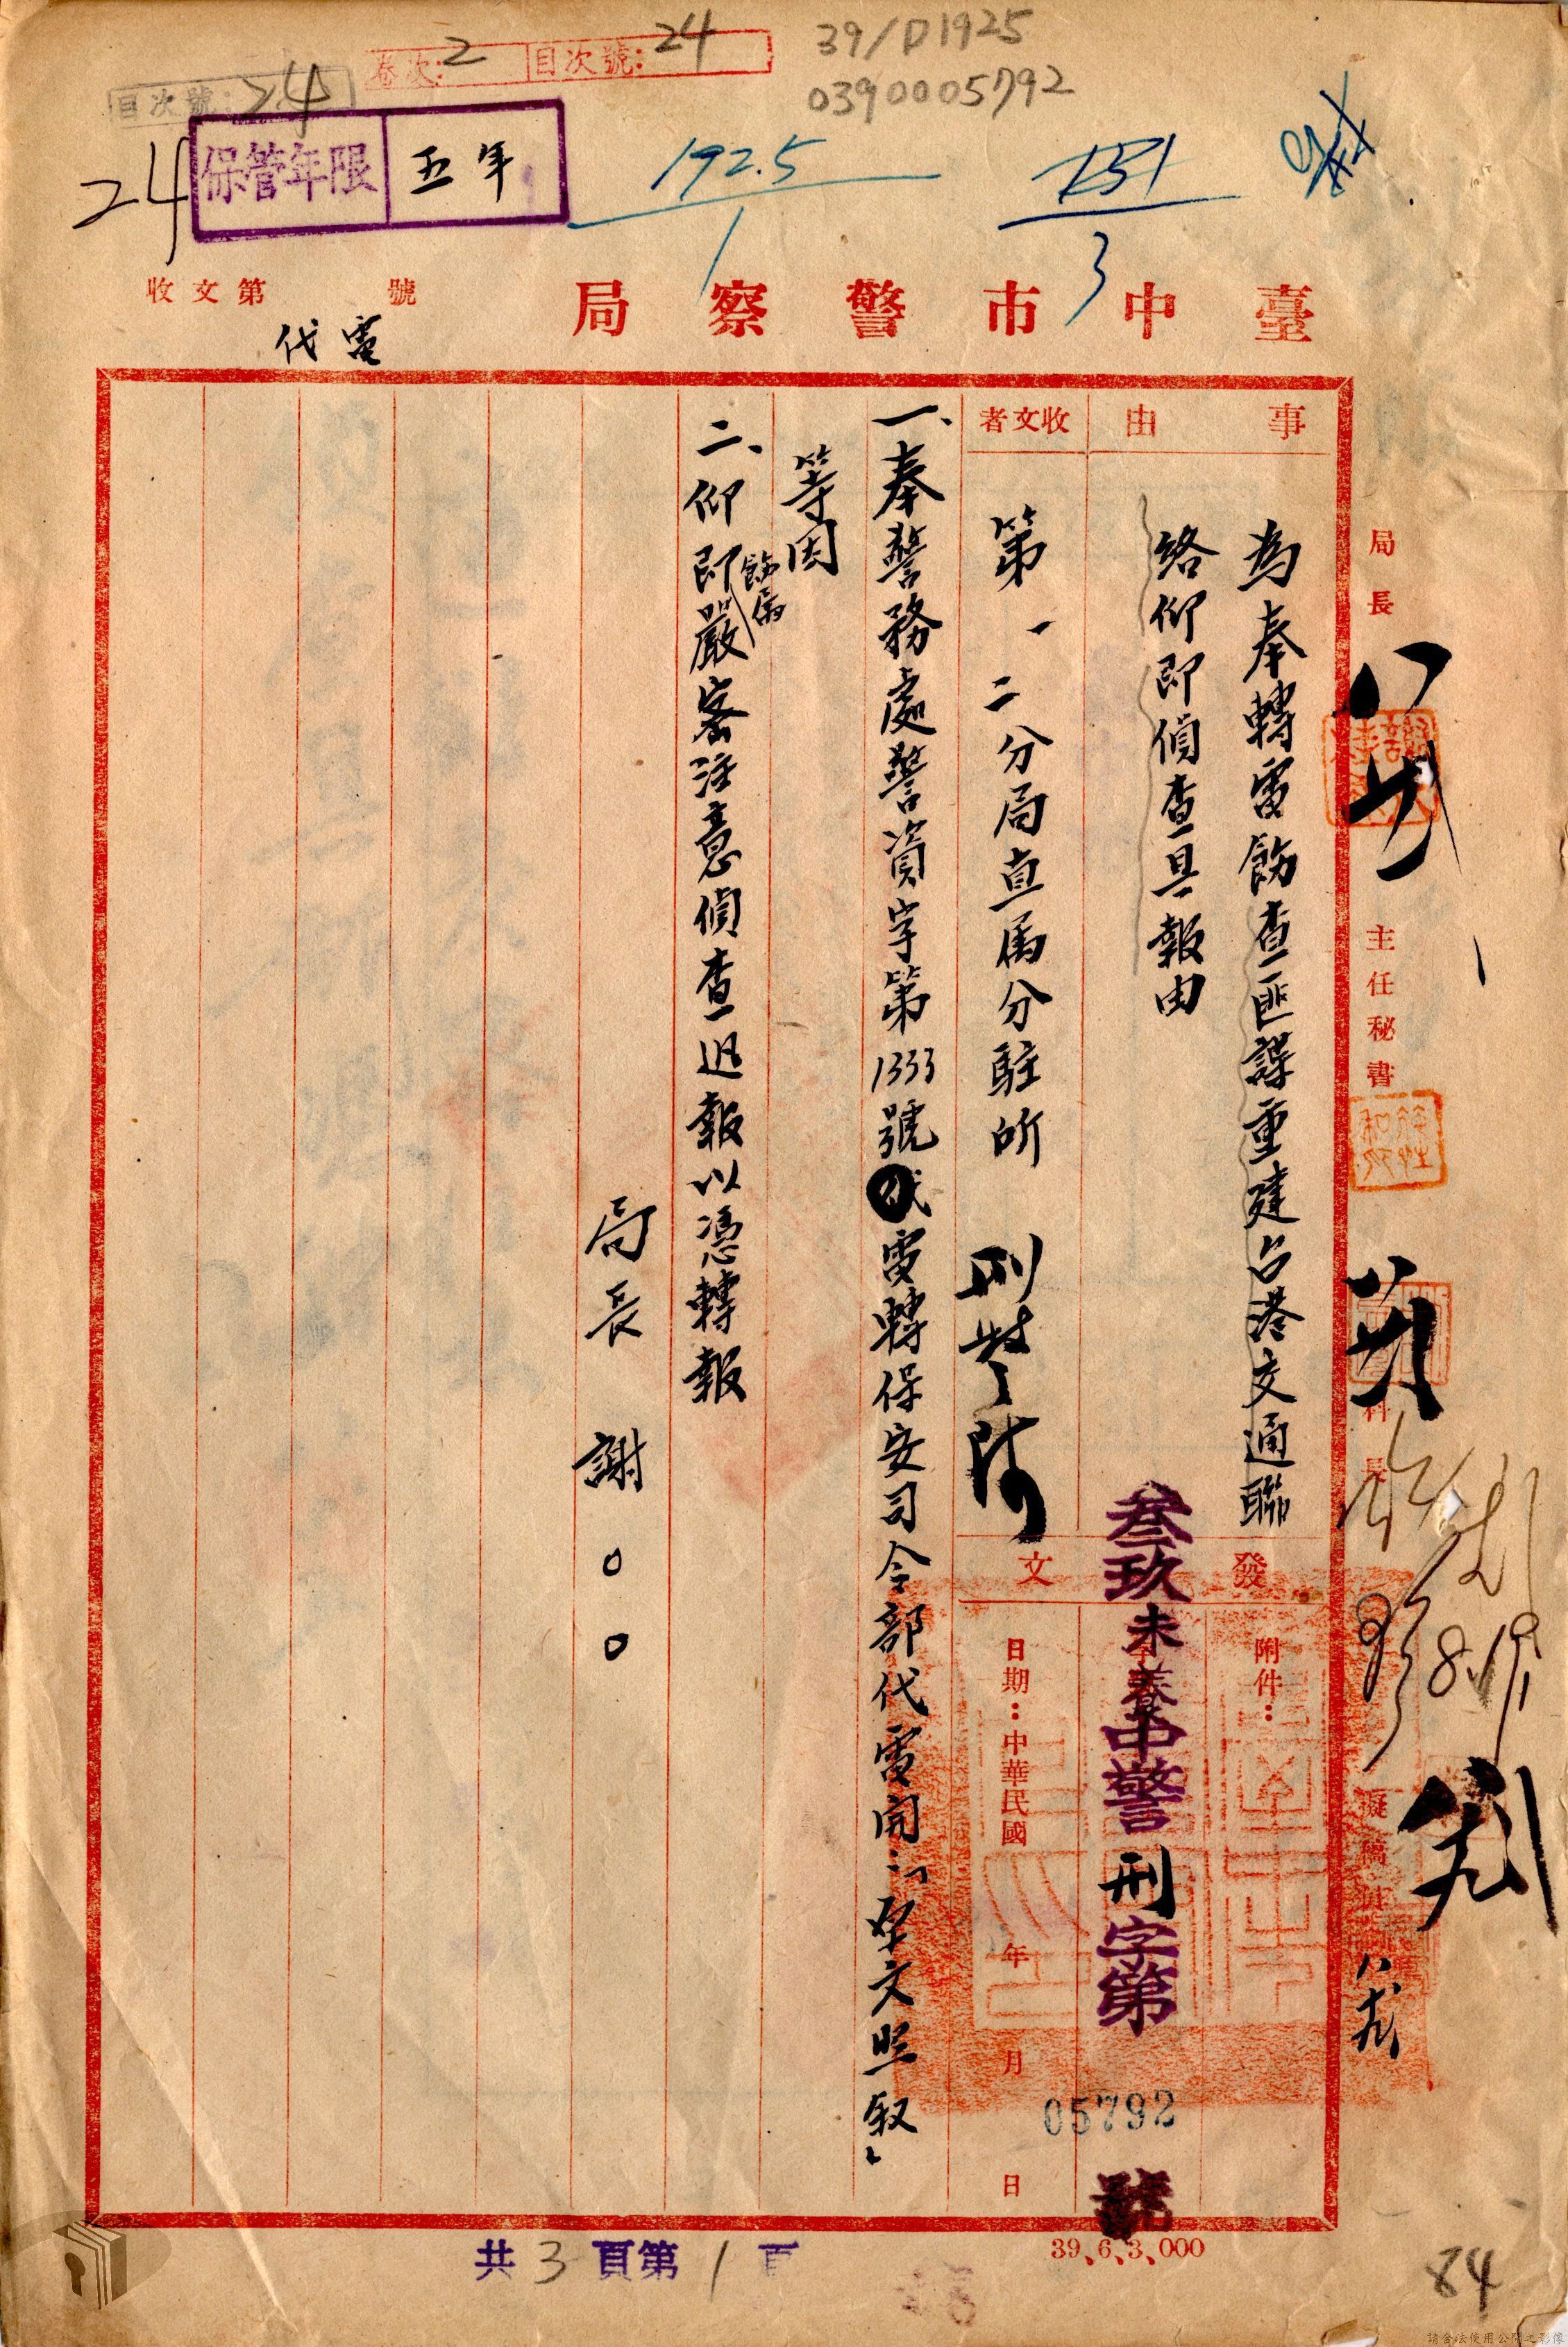 卷次:2 目次號:24
目次號:24
39/D1925
0390005792
24
保管年限 五年
192.5
1
151
3
臺中市警察局
代電
收文第 號
事由
為奉轉電飭查匪諜重建台港交通聯
絡仰即偵查具報由
收文者
第一、二分局直屬分駐所 刑警隊
發文
附件：
叁玖未養中警刑字第05792號
日期：中華民國 年 月 日
一、奉警務處警資字第1333號代電轉保安司令部代電開：「原文照叙」
等因
二、仰即飭屬嚴密注意偵查迅報以憑轉報
局長 謝○○
局長
主任秘書
科長
擬稿員
8.19
39、6、3、000
共3頁第1頁
84
請合法使用公開之影像